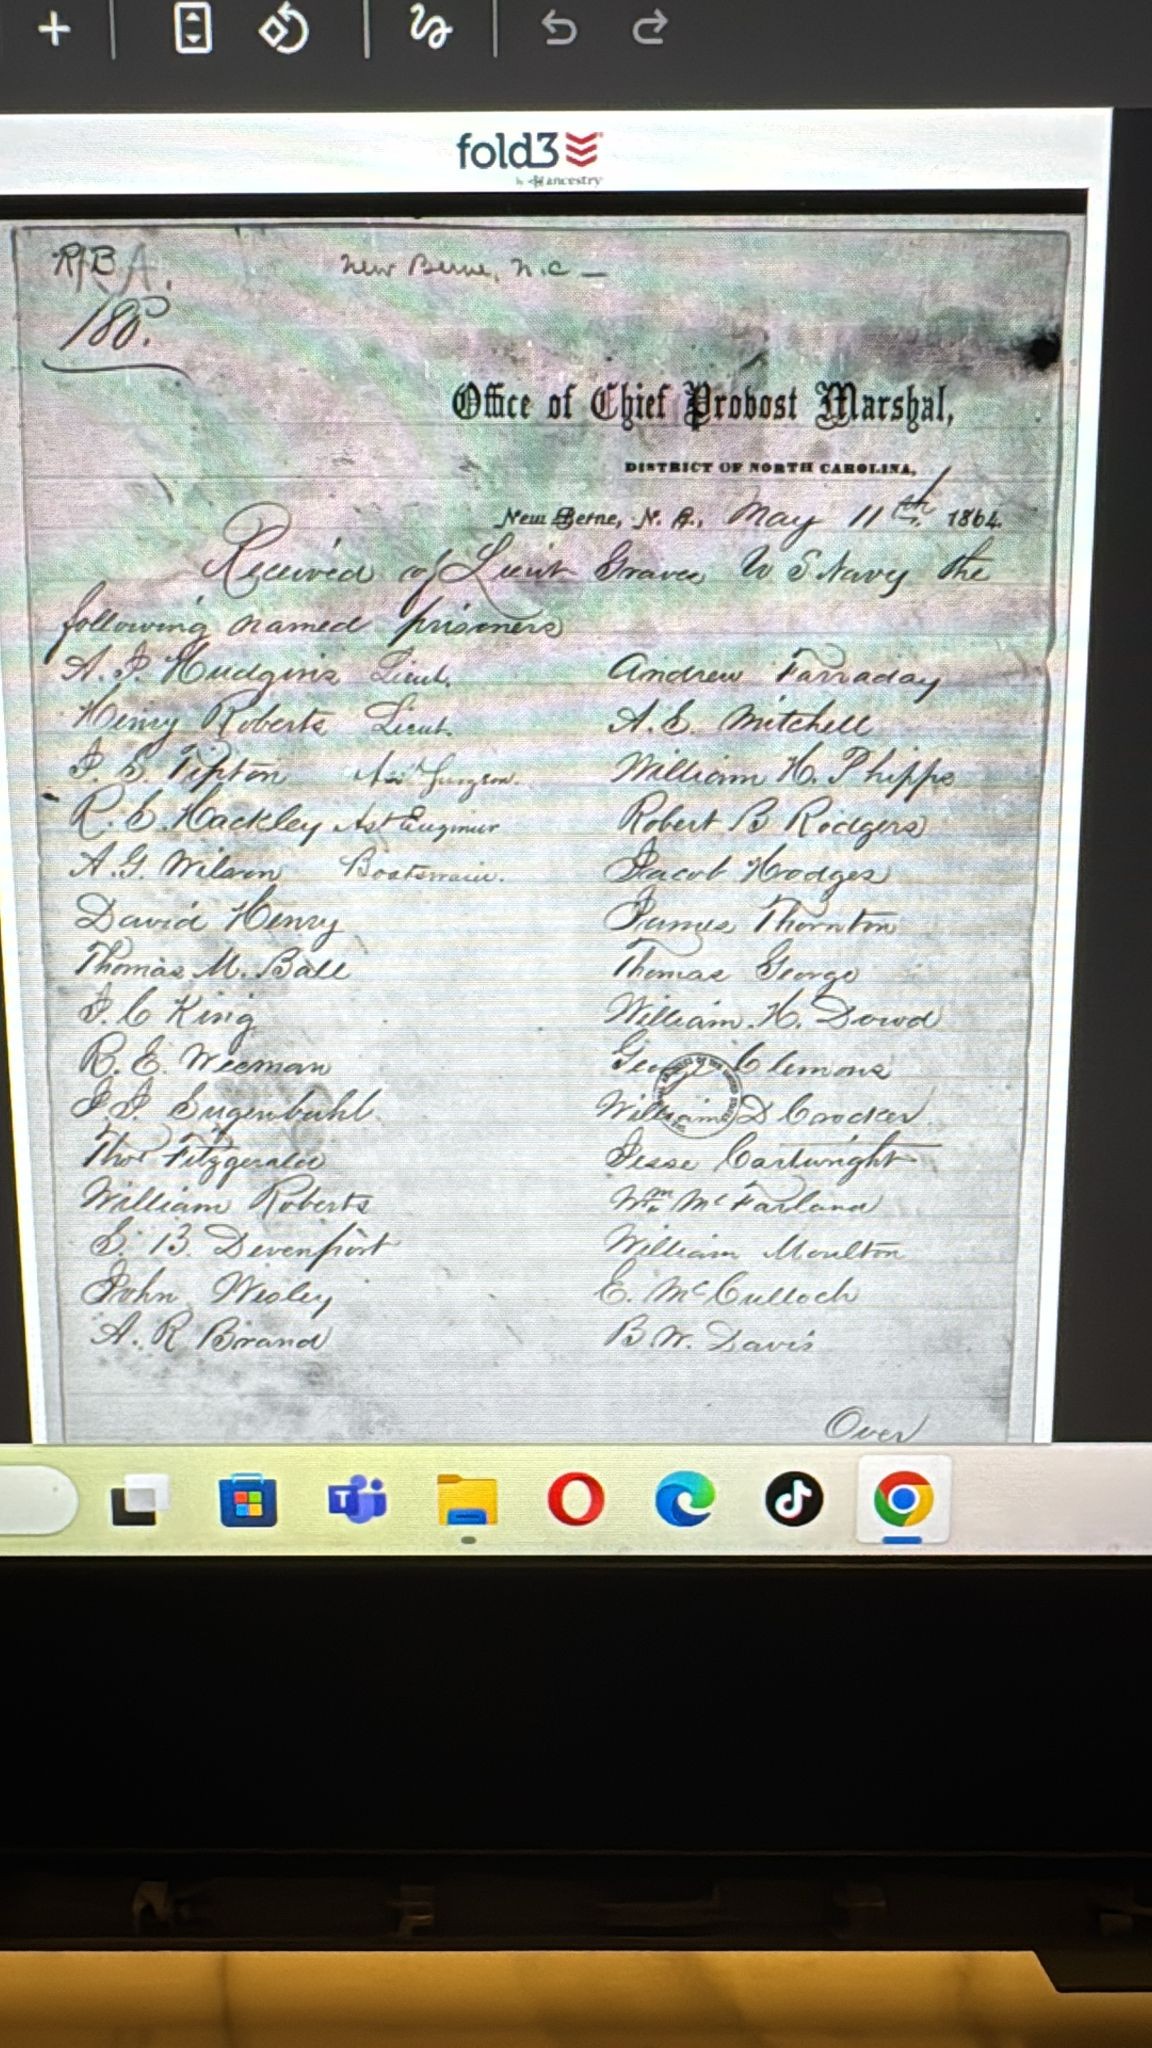 fold3
by ancestry
R.B.A.
New Berne, N.C. —
180.
Office of Chief Provost Marshal,
DISTRICT OF NORTH CAROLINA,
New Berne, N. C., May 11th 1864.
Received of Lieut Graves U S Navy the
following named prisoners
A. P. Hudgins Lieut.
Henry Roberts Lieut.
J. S. Tipton Ass' Surgeon.
R. S. Hackley Ast Engineer
A. G. Wilson Boatswain.
David Henry
Thomas M. Ball
J. C King
R. E. Weeman
J. J. Sugenbuhl.
Thos Fitzgerald
William Roberts
S. B. Devenport
John Wesley
A. R Brand
Andrew Farraday
A. S. Mitchell
William H. Phipps
Robert B Rodgers
Jacob Hodges
James Thornton
Thomas George
William. H. Dowd
Clemons
William D Crocker
Jesse Cartwright
Wm McFarland
William Moulton
E. McCulloch
B. W. Davis
Over